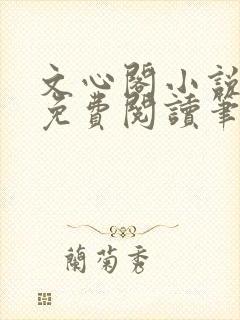 文心閣小說
免費閱讀筆
蘭菊秀